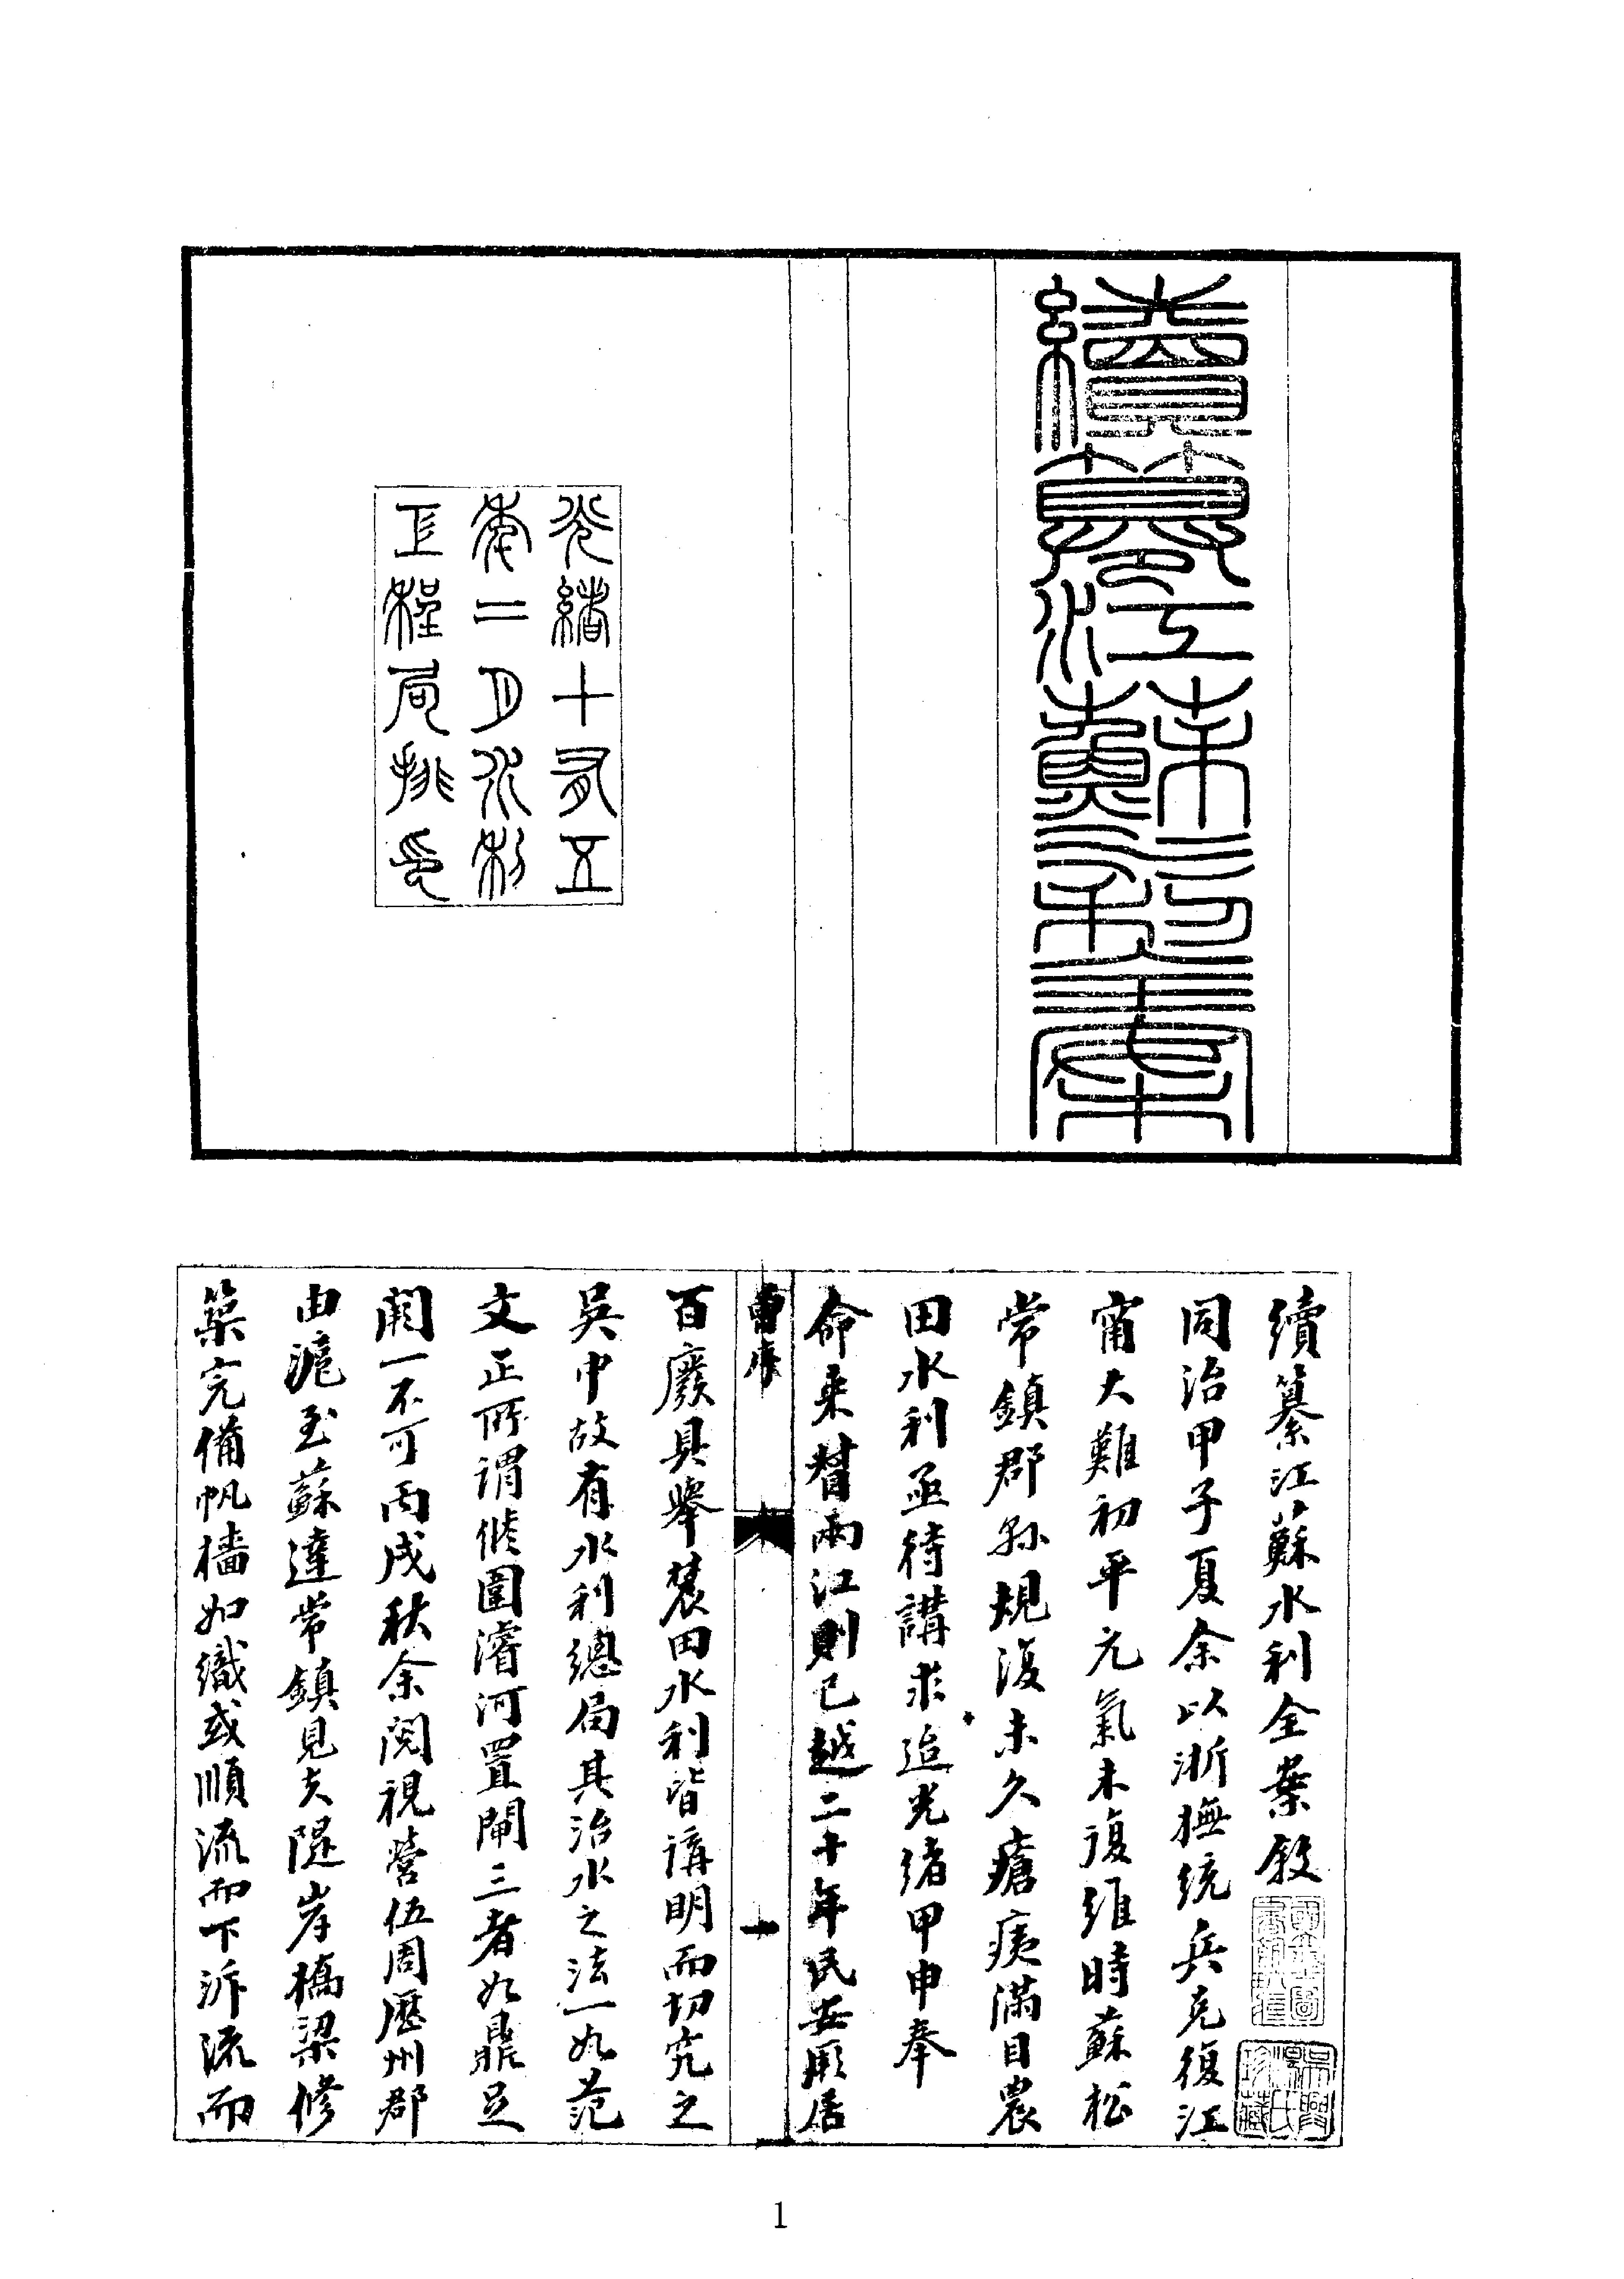 續纂江蘇水利全案
光緒十有五
年二月水利
工程局排印
續纂江蘇水利全案敘
同治甲子夏余以浙撫統兵克復江
甯大難初平元氣未復維時蘇松
常鎮郡縣規復未久瘡痍滿目農
田水利亟待講求迨光緒甲申奉
命來督兩江則已越二十年民安厥居
曾序
一
百廢具舉農田水利皆講明而切究之
吳中故有水利總局其治水之法一如范
文正所謂修圍濬河置閘三者如鼎足
闕一不可丙戌秋余閱視營伍周歷州郡
由滬至蘇達常鎮見夫隄岸橋梁修
築完備帆檣如織或順流而下泝流而
1